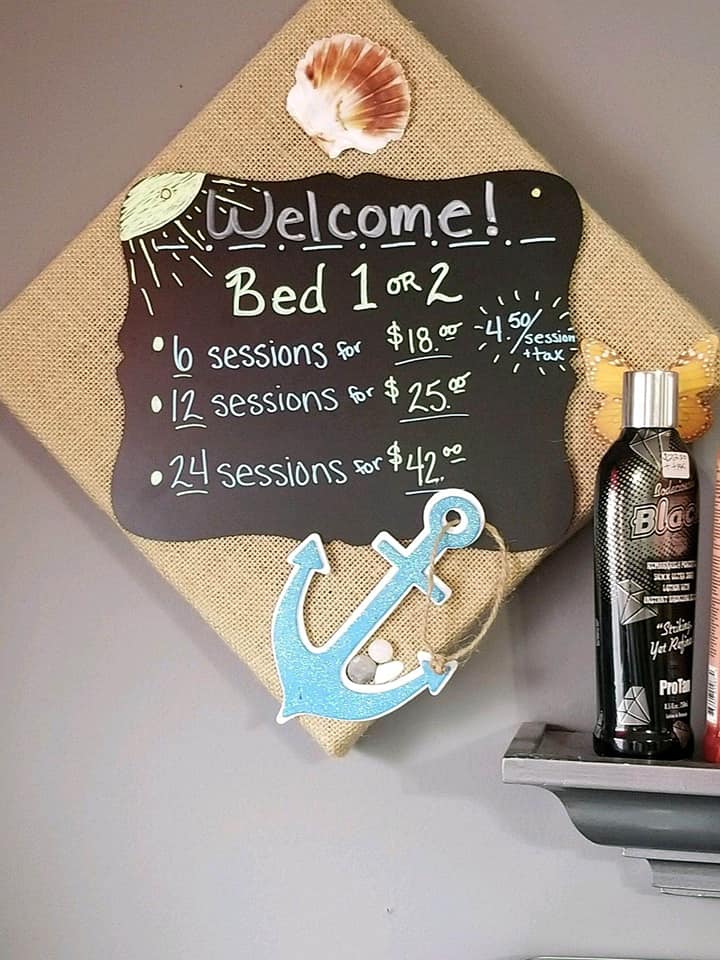 Welcome!
Bed 1 OR 2
• 6 sessions for $18.00
4.50/session
+tax
• 12 sessions for $25.00
• 24 sessions for $42.00
Black
"Striking
Yet Refin
ProTan